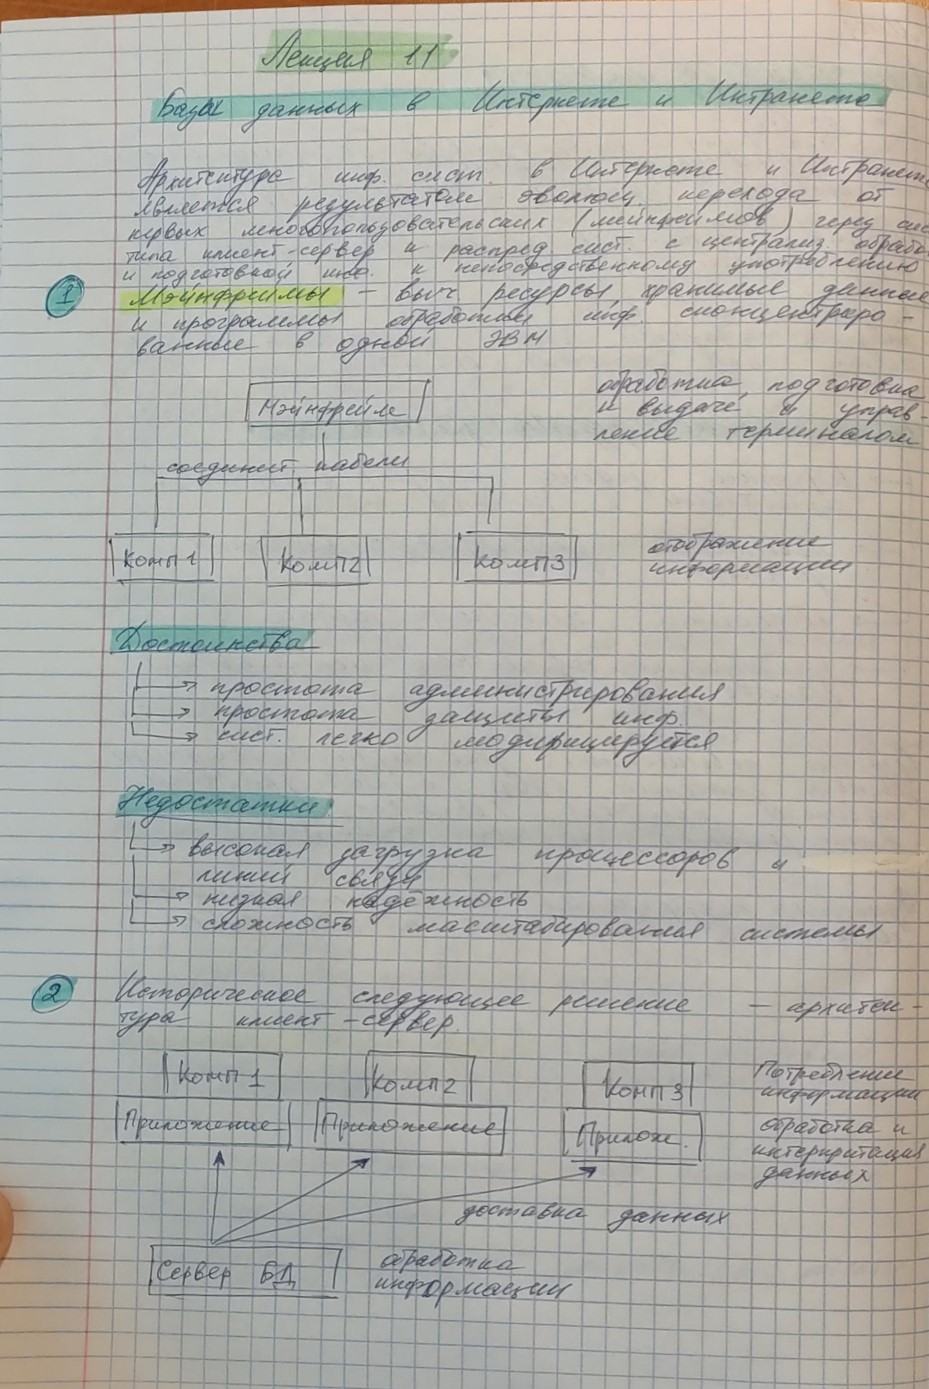 Лекция 11
Базы данных в Интернете и Интранете
Архитектура инф. сист. в Интернете и Интранете
является результатом эволюц. перехода от
первых многопользовательских (мейнфреймов) через сис
типа клиент-сервер к распред. сист. с централиз. обрабо
и подготовкой инф. к непосредственному употреблению
1 Мэйнфреймы – выч. ресурсы, хранимые данные
и программы обработки инф. сконцентриро-
ванные в одной ЭВМ
Мэйнфрейм
обработка, подготовка
к выдаче и управ-
ление терминалом
соединит. кабели
Комп 1 Комп 2 Комп 3
отображение
информации
Достоинства
простота администрирования
простота защиты инф.
сист. легко модифицируется
Недостатки
высокая загрузка процессоров и
линий связи
низкая надёжность
сложность масштабирования системы
2 Историческое следующее решение – архитек-
тура клиент-сервер.
Комп 1 Комп 2 Комп 3
Потребление
информации
Приложение Приложение Прилож.
обработка и
интерпритация
данных
доставка данных
Сервер БД
обработка
информации